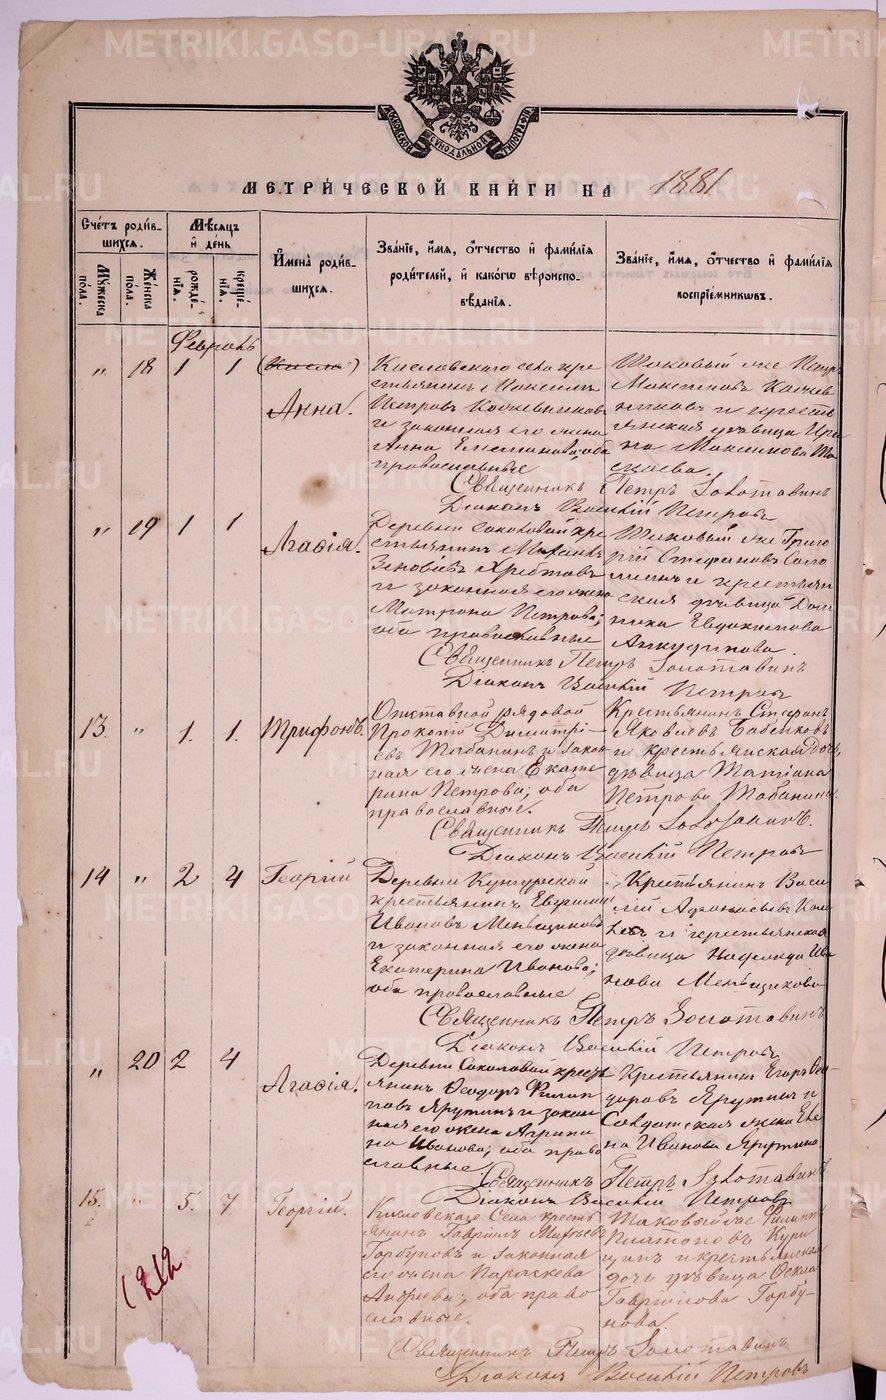 METRIKI.GASO-URAL.RU
МОСКОВСКОЙ СѴНОДАЛЬНОЙ ТИПОГРАФІИ
МЕТРИ́ЧЕСКОЙ КНИ́ГИ НА 1881
Сче́тъ роди́в-
шихсѧ.
Мѣ́сѧцъ
и҆ де́нь
И҆мена̀ роди́в-
шихсѧ.
Зва́нїе, и҆́мѧ, ѻ҆́тчество и҆ фами́лїѧ
роди́телей, и҆ како́гѡ вѣроиспо-
вѣ́данїѧ.
Зва́нїе, и҆́мѧ, ѻ҆́тчество и҆ фами́лїѧ
воспрїе́мникѡвъ.
Мꙋ́жеска
по́ла.
Же́нска
по́ла.
рожде́-
нїѧ.
креще́-
нїѧ.
Февраль
" 18 1 1
Анна.
Кисловскаго села кре
стьянинъ Максимъ
Петровъ Кожевниковъ
и законная его жена
Анна Емельянова; оба
православные
Таковый же Петръ
Максимовъ Кожев
никовъ и кресть
янская дѣвица Ири
на Максимова
Священникъ Петръ Золотавинъ
Діаконъ Василій Петровъ
" 19 1 1
Агафія.
Деревни Соколовой кре
стьянинъ Михаилъ
Зиновіевъ Хребтовъ
и законная его жена
Матрона Петрова;
оба православные
Таковый же Григо
рій Стефановъ Соло
и крестьян
ская дѣвица Дом
ника Евдокимова
Анкудинова.
Священникъ Петръ Золотавинъ
Діаконъ Василій Петровъ
13. " 1. 1.
Трифонъ.
Отставной рядовой
Прокопій Димитрі-
евъ Табанинъ и закон
ная его жена Екате
рина Петрова; оба
православные.
Крестьянинъ Стефанъ
Яковлевъ
и крестьянская дочь,
дѣвица Татіана
Петрова Табанина
Священникъ Петръ Золотавинъ.
Діаконъ Василій Петровъ
14 " 2 4
Георгій
Деревни Кунгурской
крестьянинъ Евфимій
Ивановъ Меньщиковъ
и законная его жена
Екатерина Иванова;
оба православные
Крестьянинъ Васи
лій Афонасьевъ
и крестьянская
дѣвица Надежда Ива
нова Меньщикова
Священникъ Петръ Золотавинъ
Діаконъ Василій Петровъ
" 20 2 4
Агафія.
Деревни Соколовой кресть
янинъ Феодоръ Филип
повъ Ярутинъ и закон
ная его жена Агрипи
на Иванова; оба право
славные
Крестьянинъ Егоръ Фео-
доровъ Ярутинъ и
Солдатская жена Еле
на Иванова Ярутина
Священникъ Петръ Золотавинъ
Діаконъ Василій Петровъ
15. " 5. 7
Георгій.
Кисловскаго Села кресть
янинъ Гавріилъ
Горбуновъ и законная
его жена Параскева
Андреева; оба право
славные.
Таковый же Филиппъ
Платоновъ Кури
цинъ и крестьянская
дочь дѣвица Фекла
Гавріилова Горбу-
нова.
Священникъ Петръ Золотавинъ
Діаконъ Василій Петровъ
(212